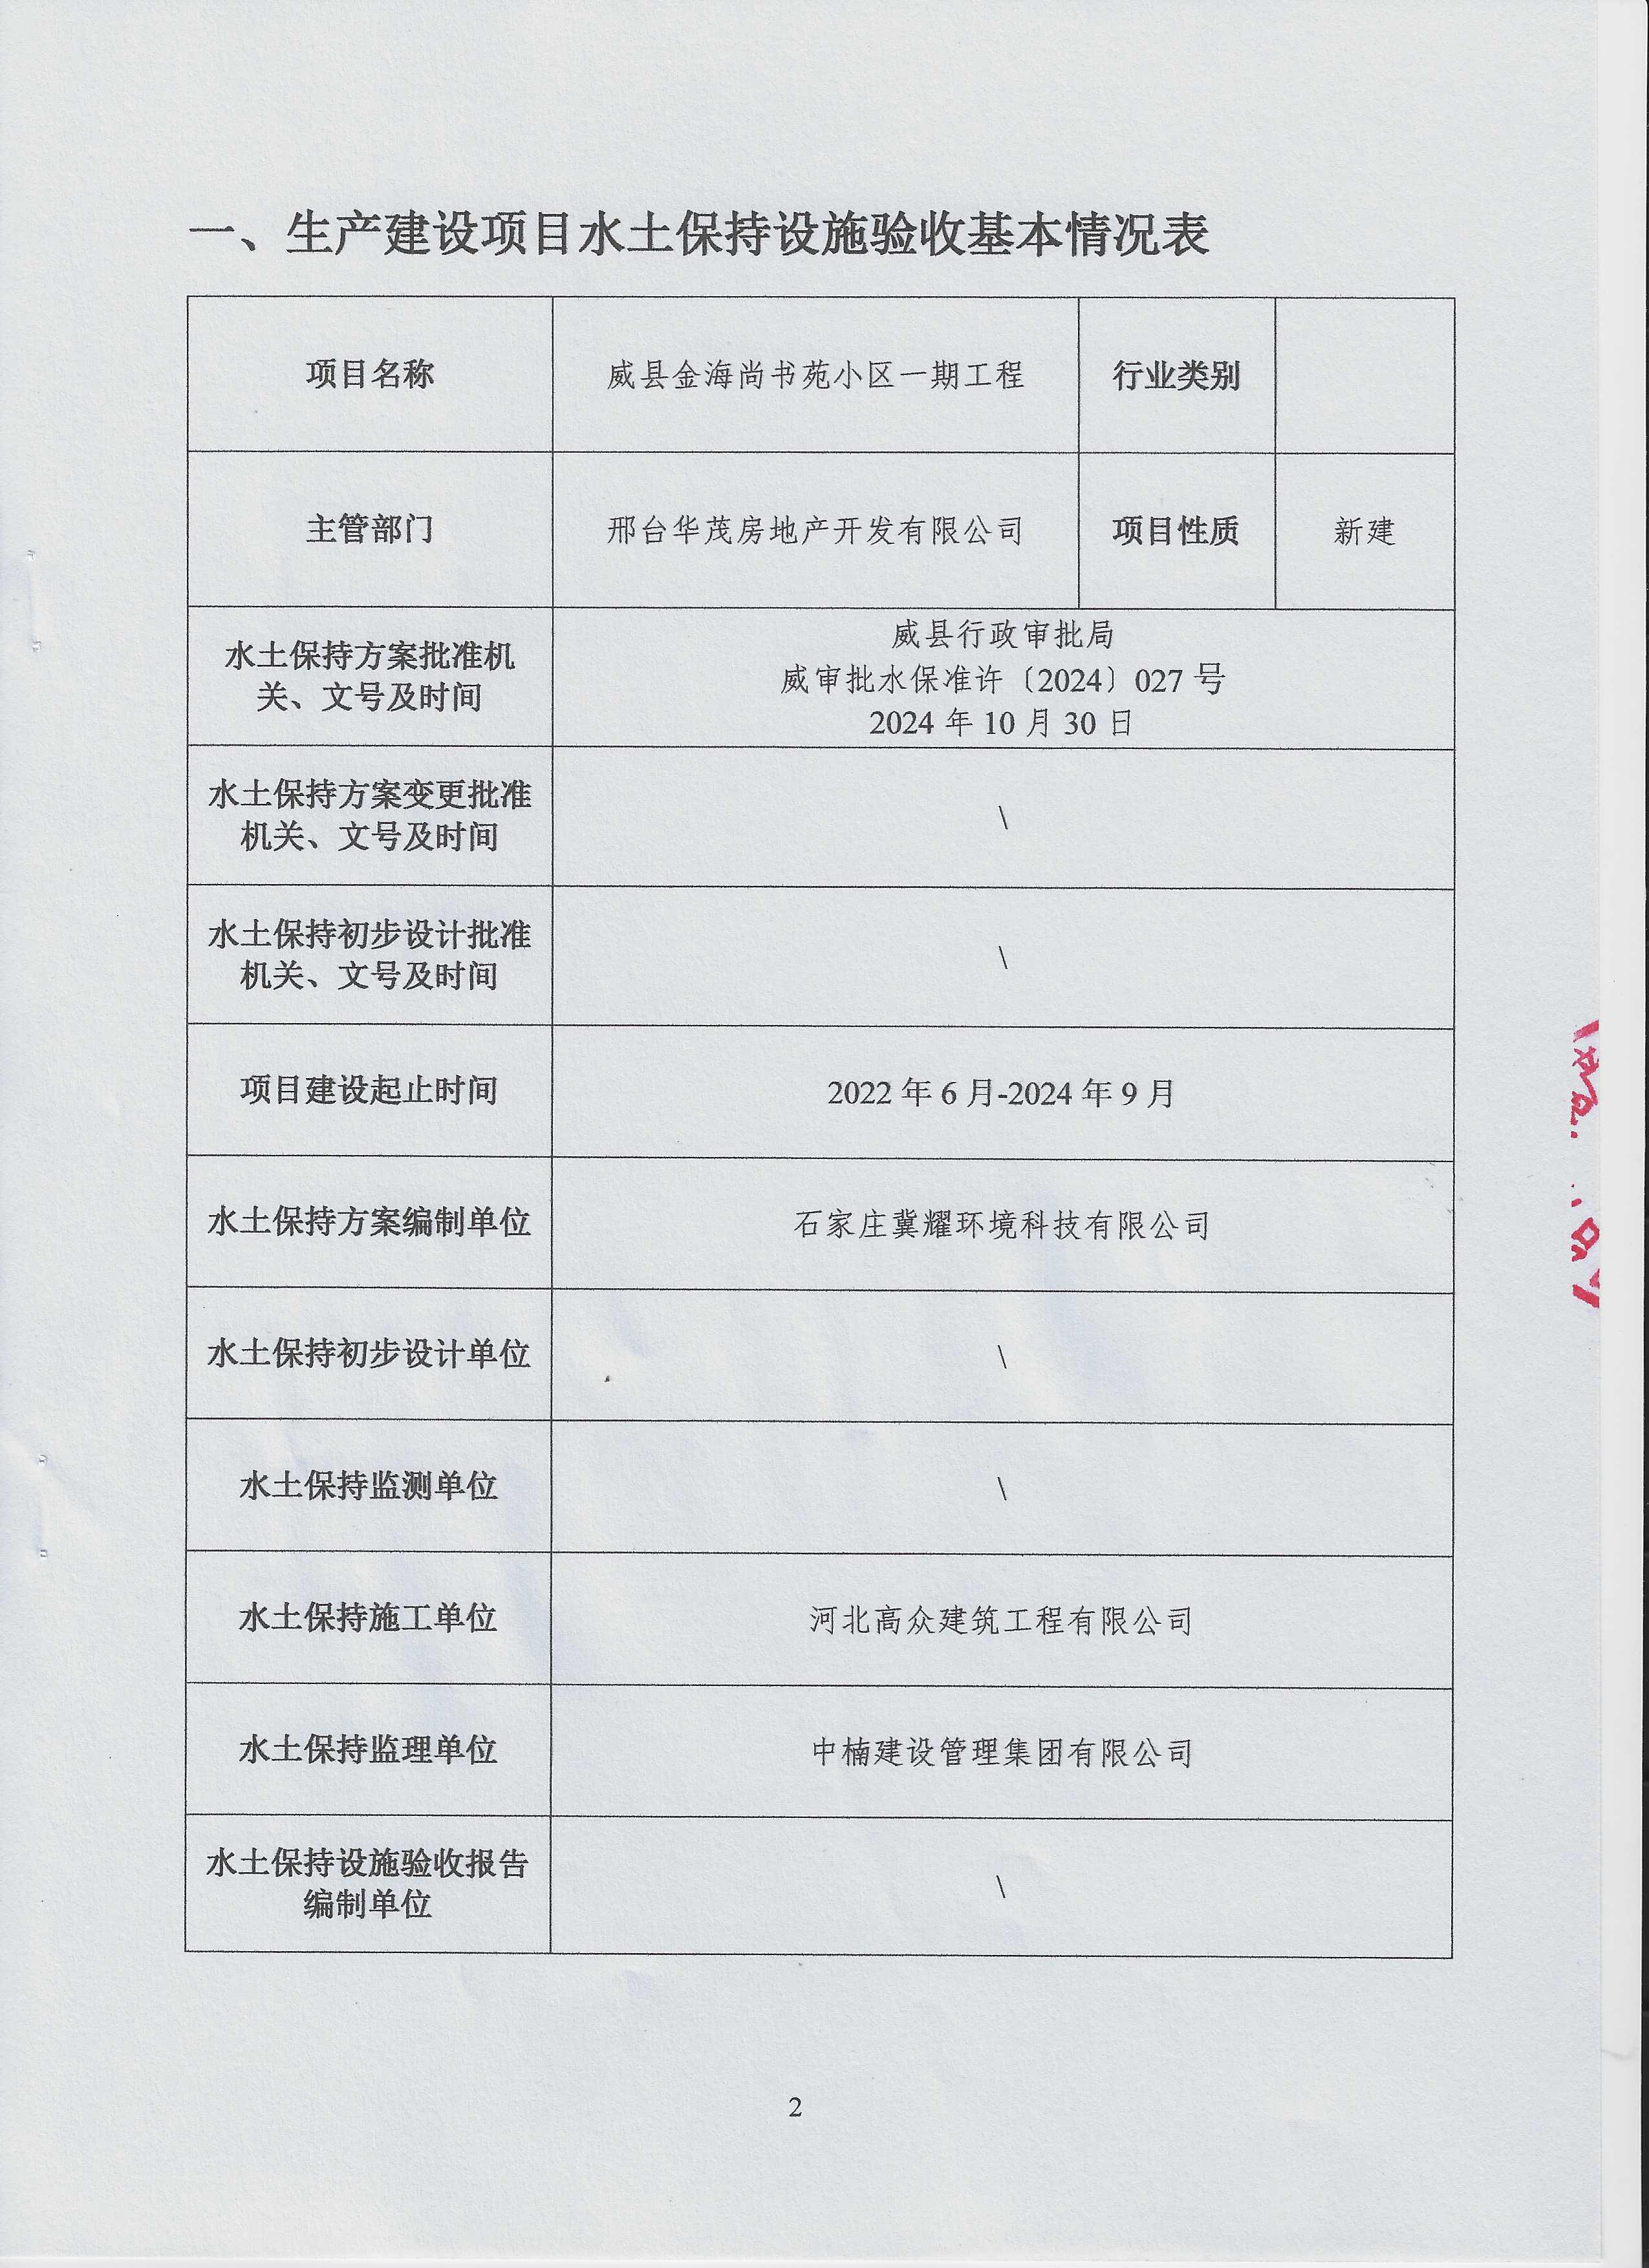 一、生产建设项目水土保持设施验收基本情况表
项目名称
威县金海尚书苑小区一期工程
行业类别
主管部门
邢台华茂房地产开发有限公司
项目性质
新建
水土保持方案批准机
关、文号及时间
威县行政审批局
威审批水保准许〔2024〕027 号
2024 年 10 月 30 日
水土保持方案变更批准
机关、文号及时间
\
水土保持初步设计批准
机关、文号及时间
\
项目建设起止时间
2022 年 6 月-2024 年 9 月
水土保持方案编制单位
石家庄冀耀环境科技有限公司
水土保持初步设计单位
\
水土保持监测单位
\
水土保持施工单位
河北高众建筑工程有限公司
水土保持监理单位
中楠建设管理集团有限公司
水土保持设施验收报告
编制单位
\
2